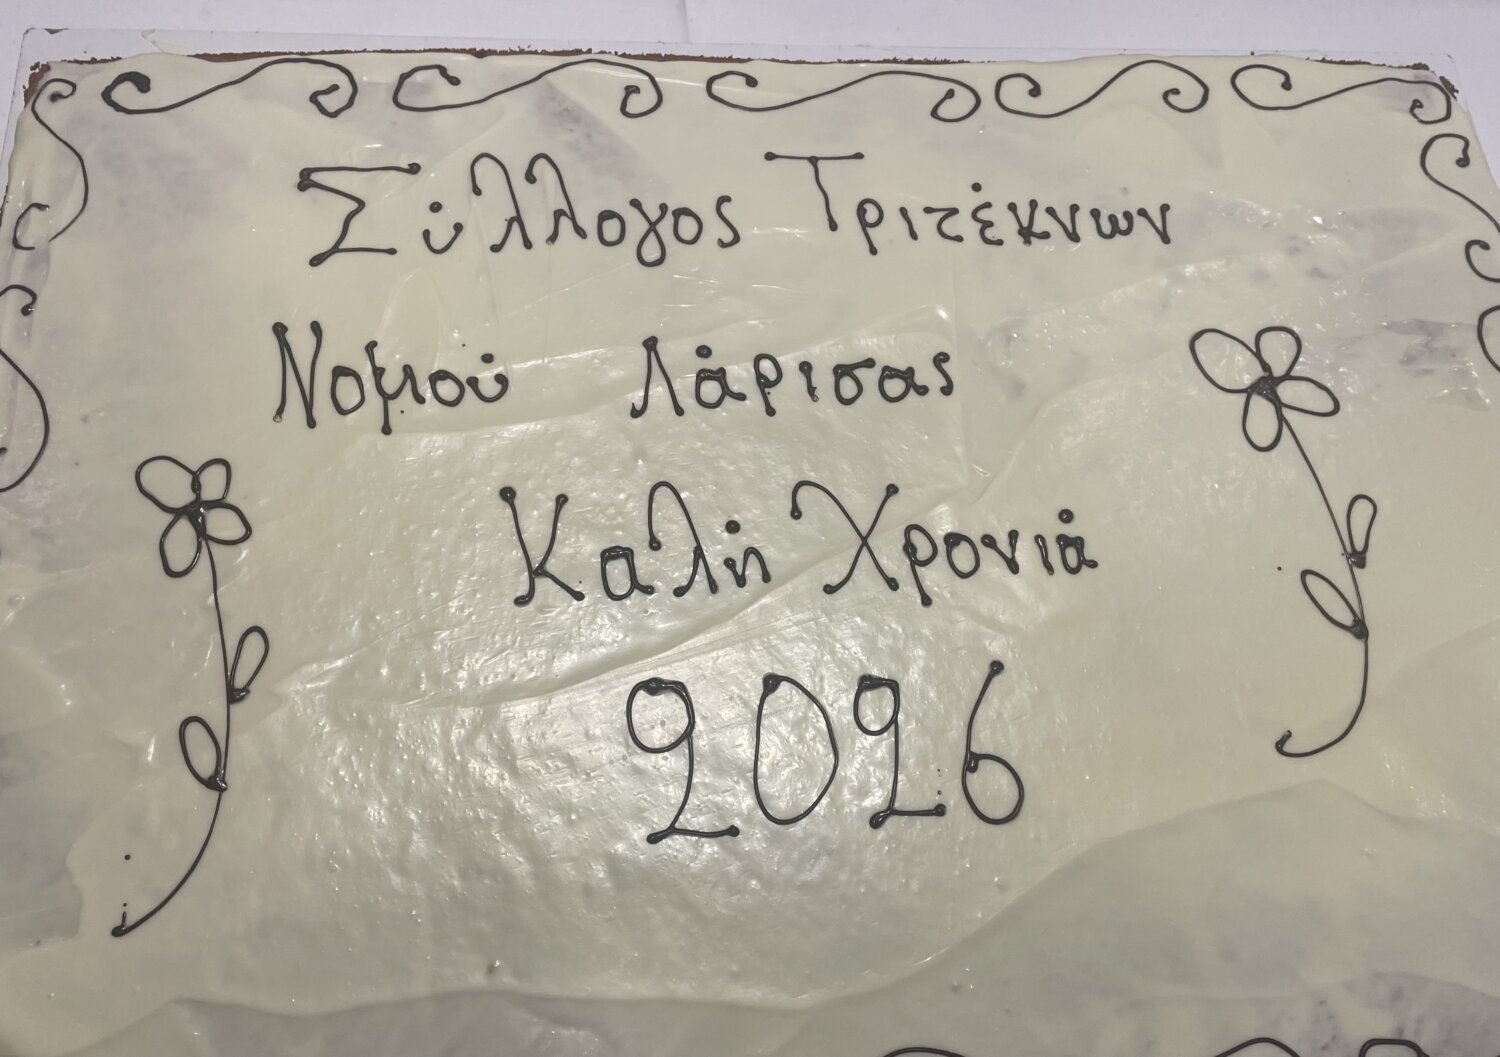 Σύλλογος Τριτέκνων
Νομού Λάρισας
Καλή Χρονιά
2026